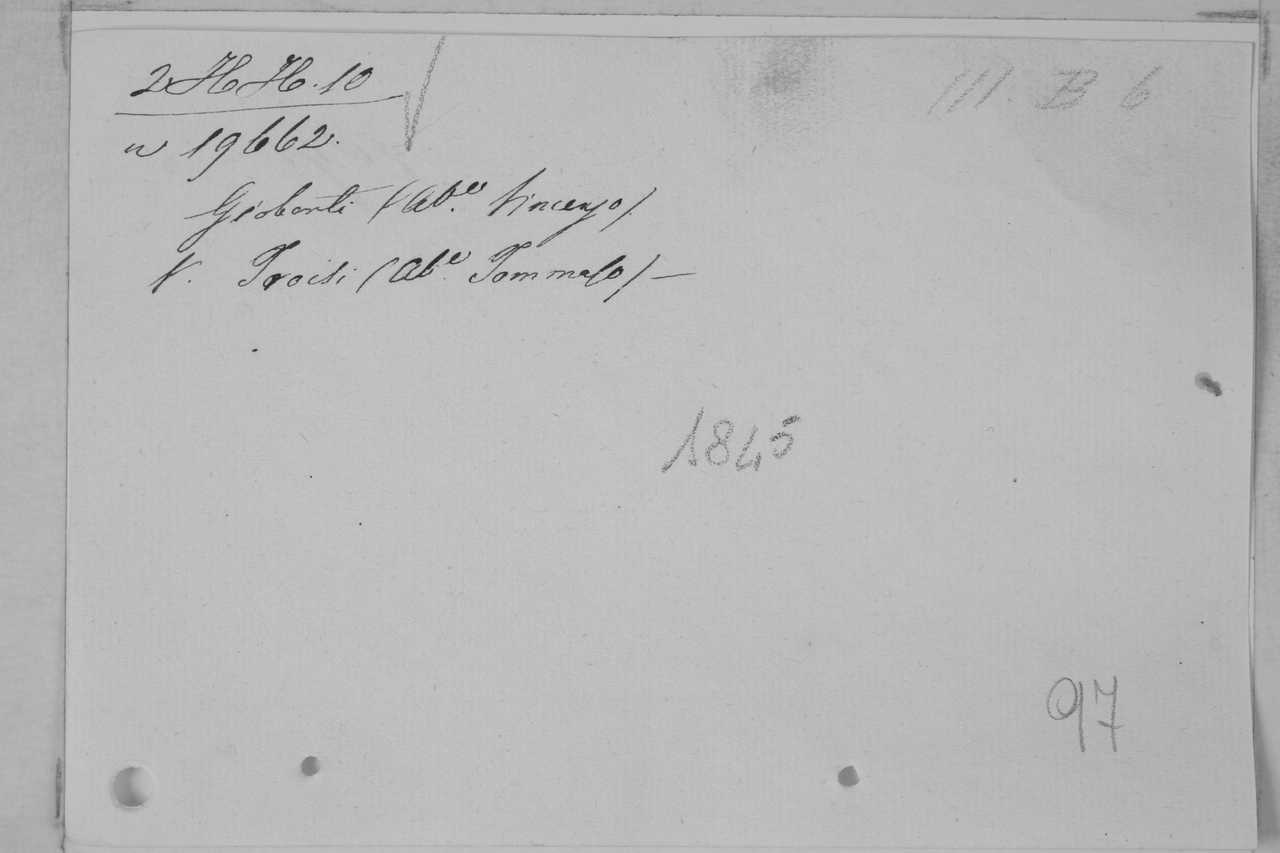 2HH.10
III. B 6
n 19662.
Gioberti (Ab.e Vincenzo)
V. Troisi (Ab.e Tommaso) —
1845
97